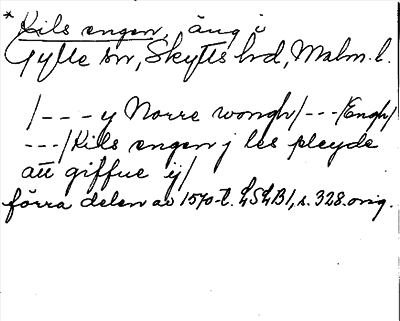 * Kils engen, äng i
Gylle sn, Skytts hd, Malm. l.
/--- y Norre wongh/---/Engh/
---/Kils engen j les pleyde
att giffue ij/
förra delen av 1570-t. LSLB1, s. 328. orig.